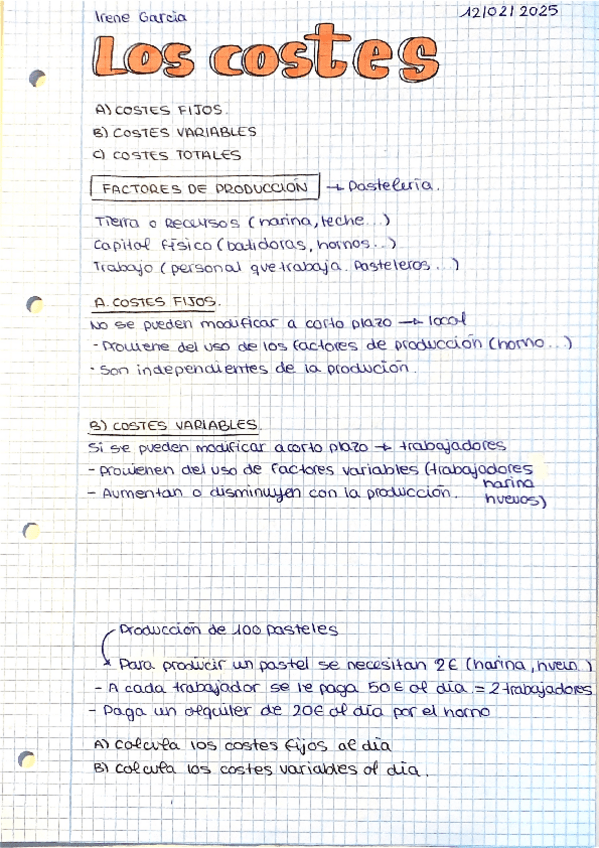 Irene Garcia
12/02/2025
Los costes
A) COSTES FIJOS.
B) COSTES VARIABLES
C) COSTES TOTALES
FACTORES DE PRODUCCIÓN → Pastelería.
Tierra o Recursos (harina, leche...)
Capital físico (batidoras, hornos...)
Trabajo (personal que trabaja. Pasteleros...)
A. COSTES FIJOS.
No se pueden modificar a corto plazo → local
- Proviene del uso de los factores de producción (horno...)
· Son independientes de la produción.
B) COSTES VARIABLES.
Si se pueden modificar a corto plazo → trabajadores
- Provienen del uso de factores variables (trabajadores
harina
- Aumentan o disminuyen con la producción.
huevos)
Producción de 100 pasteles
Para producir un pastel se necesitan 2€ (harina, huevo)
- A cada trabajador se le paga 50€ al día = 2 trabajadores
- Paga un alquiler de 20€ al día por el horno
A) Calcula los costes fijos al día
B) Calcula los costes variables al día.